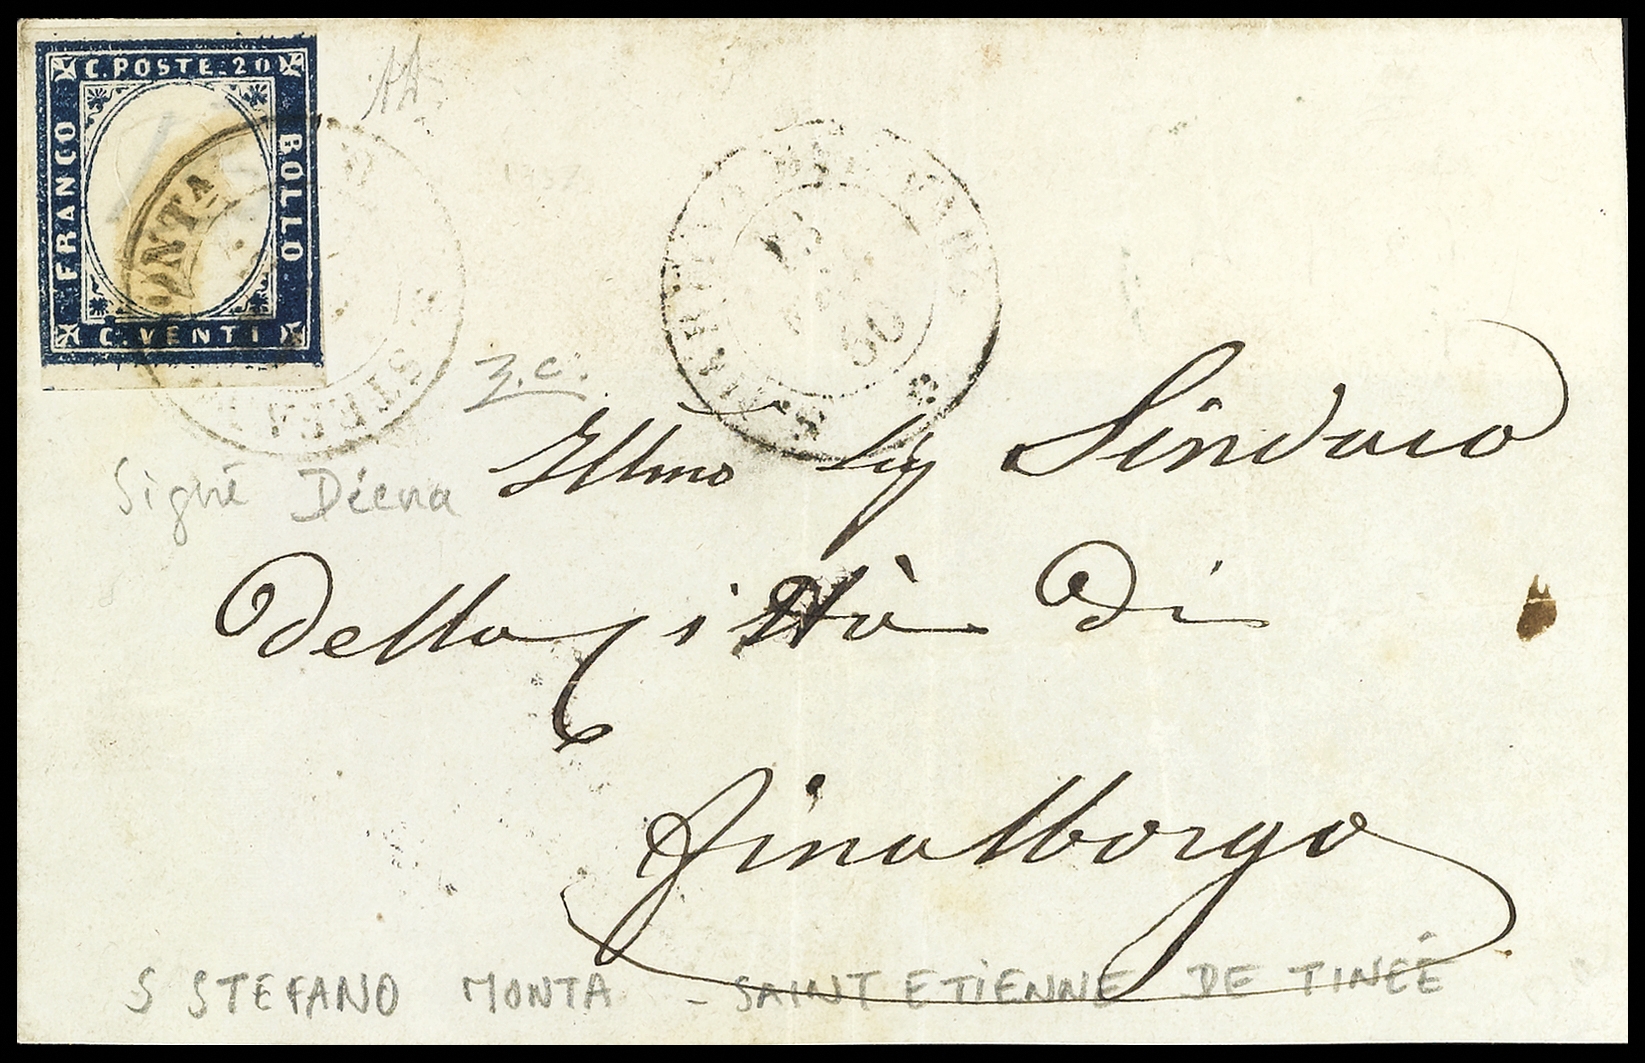 C. POSTE. 20
FRANCO
BOLLO
C. VENTI
60
z.c.
Signé Diena
Illmo Sig Sindaco
della Città di
Finalborgo
S STEFANO MONTA - SAINT ETIENNE DE TINÉE